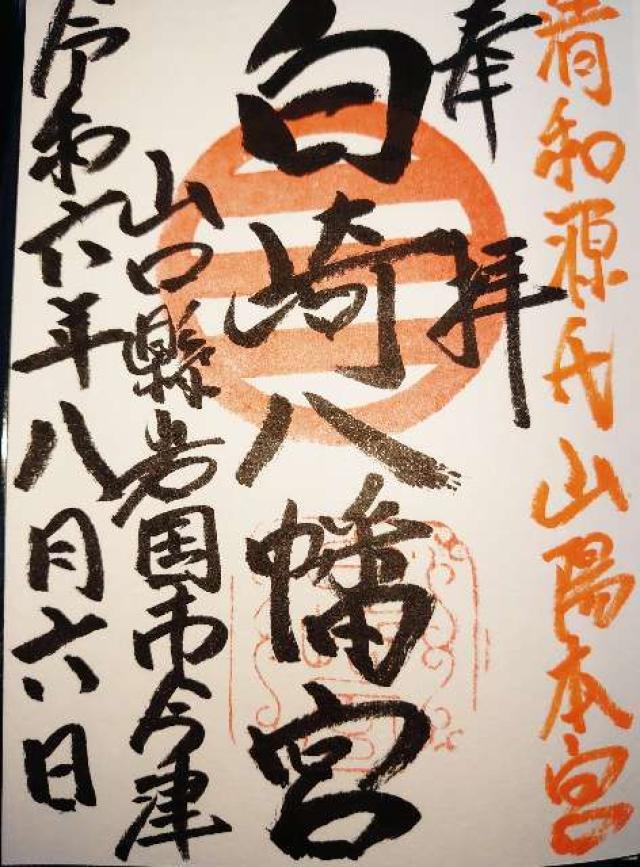 清和源氏山陽本宮
奉拝
白崎八幡宮
山口縣岩国市今津
令和六年八月六日